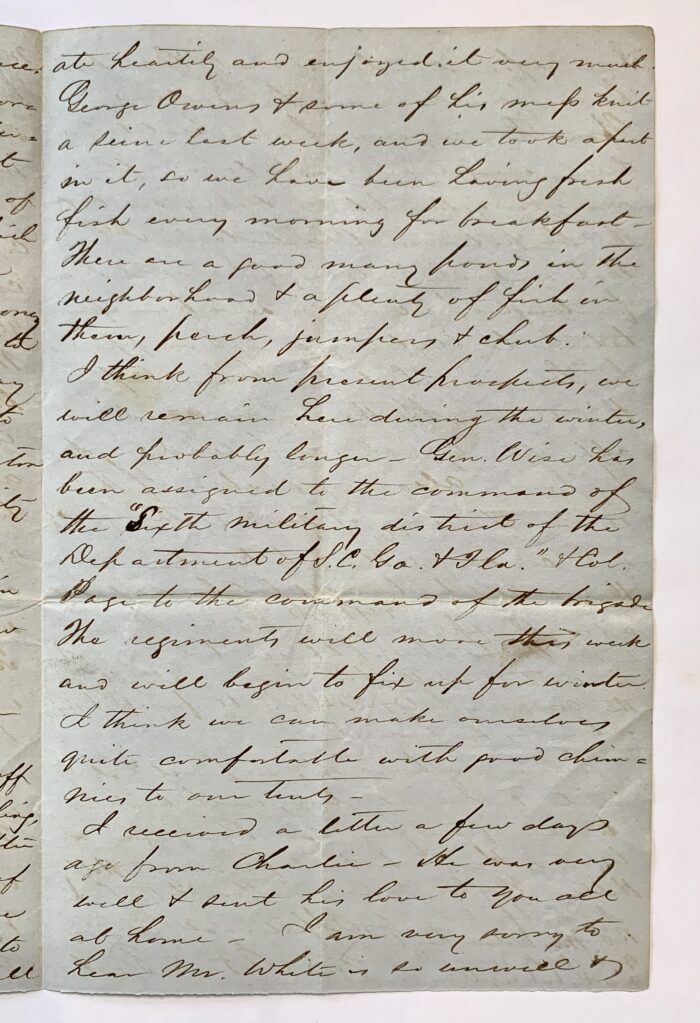 ate heartily and enjoyed it very much.
George Owens & some of his mess knit
a seine last week, and we took a part
in it, so we have been having fresh
fish every morning for breakfast –
There are a good many ponds in the
neighborhood & a plenty of fish in
them, perch, jumpers & chub.
I think from present prospects, we
will remain here during the winter,
and probably longer – Gen. Wise has
been assigned to the command of
the "Sixth military district of the
Department of S.C. Ga. & Fla." & Col.
Page to the command of the brigade
The regiments will move this week
and will begin to fix up for winter.
I think we can make ourselves
quite comfortable with good chim=
nies to our tents –
I received a letter a few days
ago from Charlie – He was very
well & sent his love to you all
at home – I am very sorry to
hear Mr. White is so unwell &
off
of
to